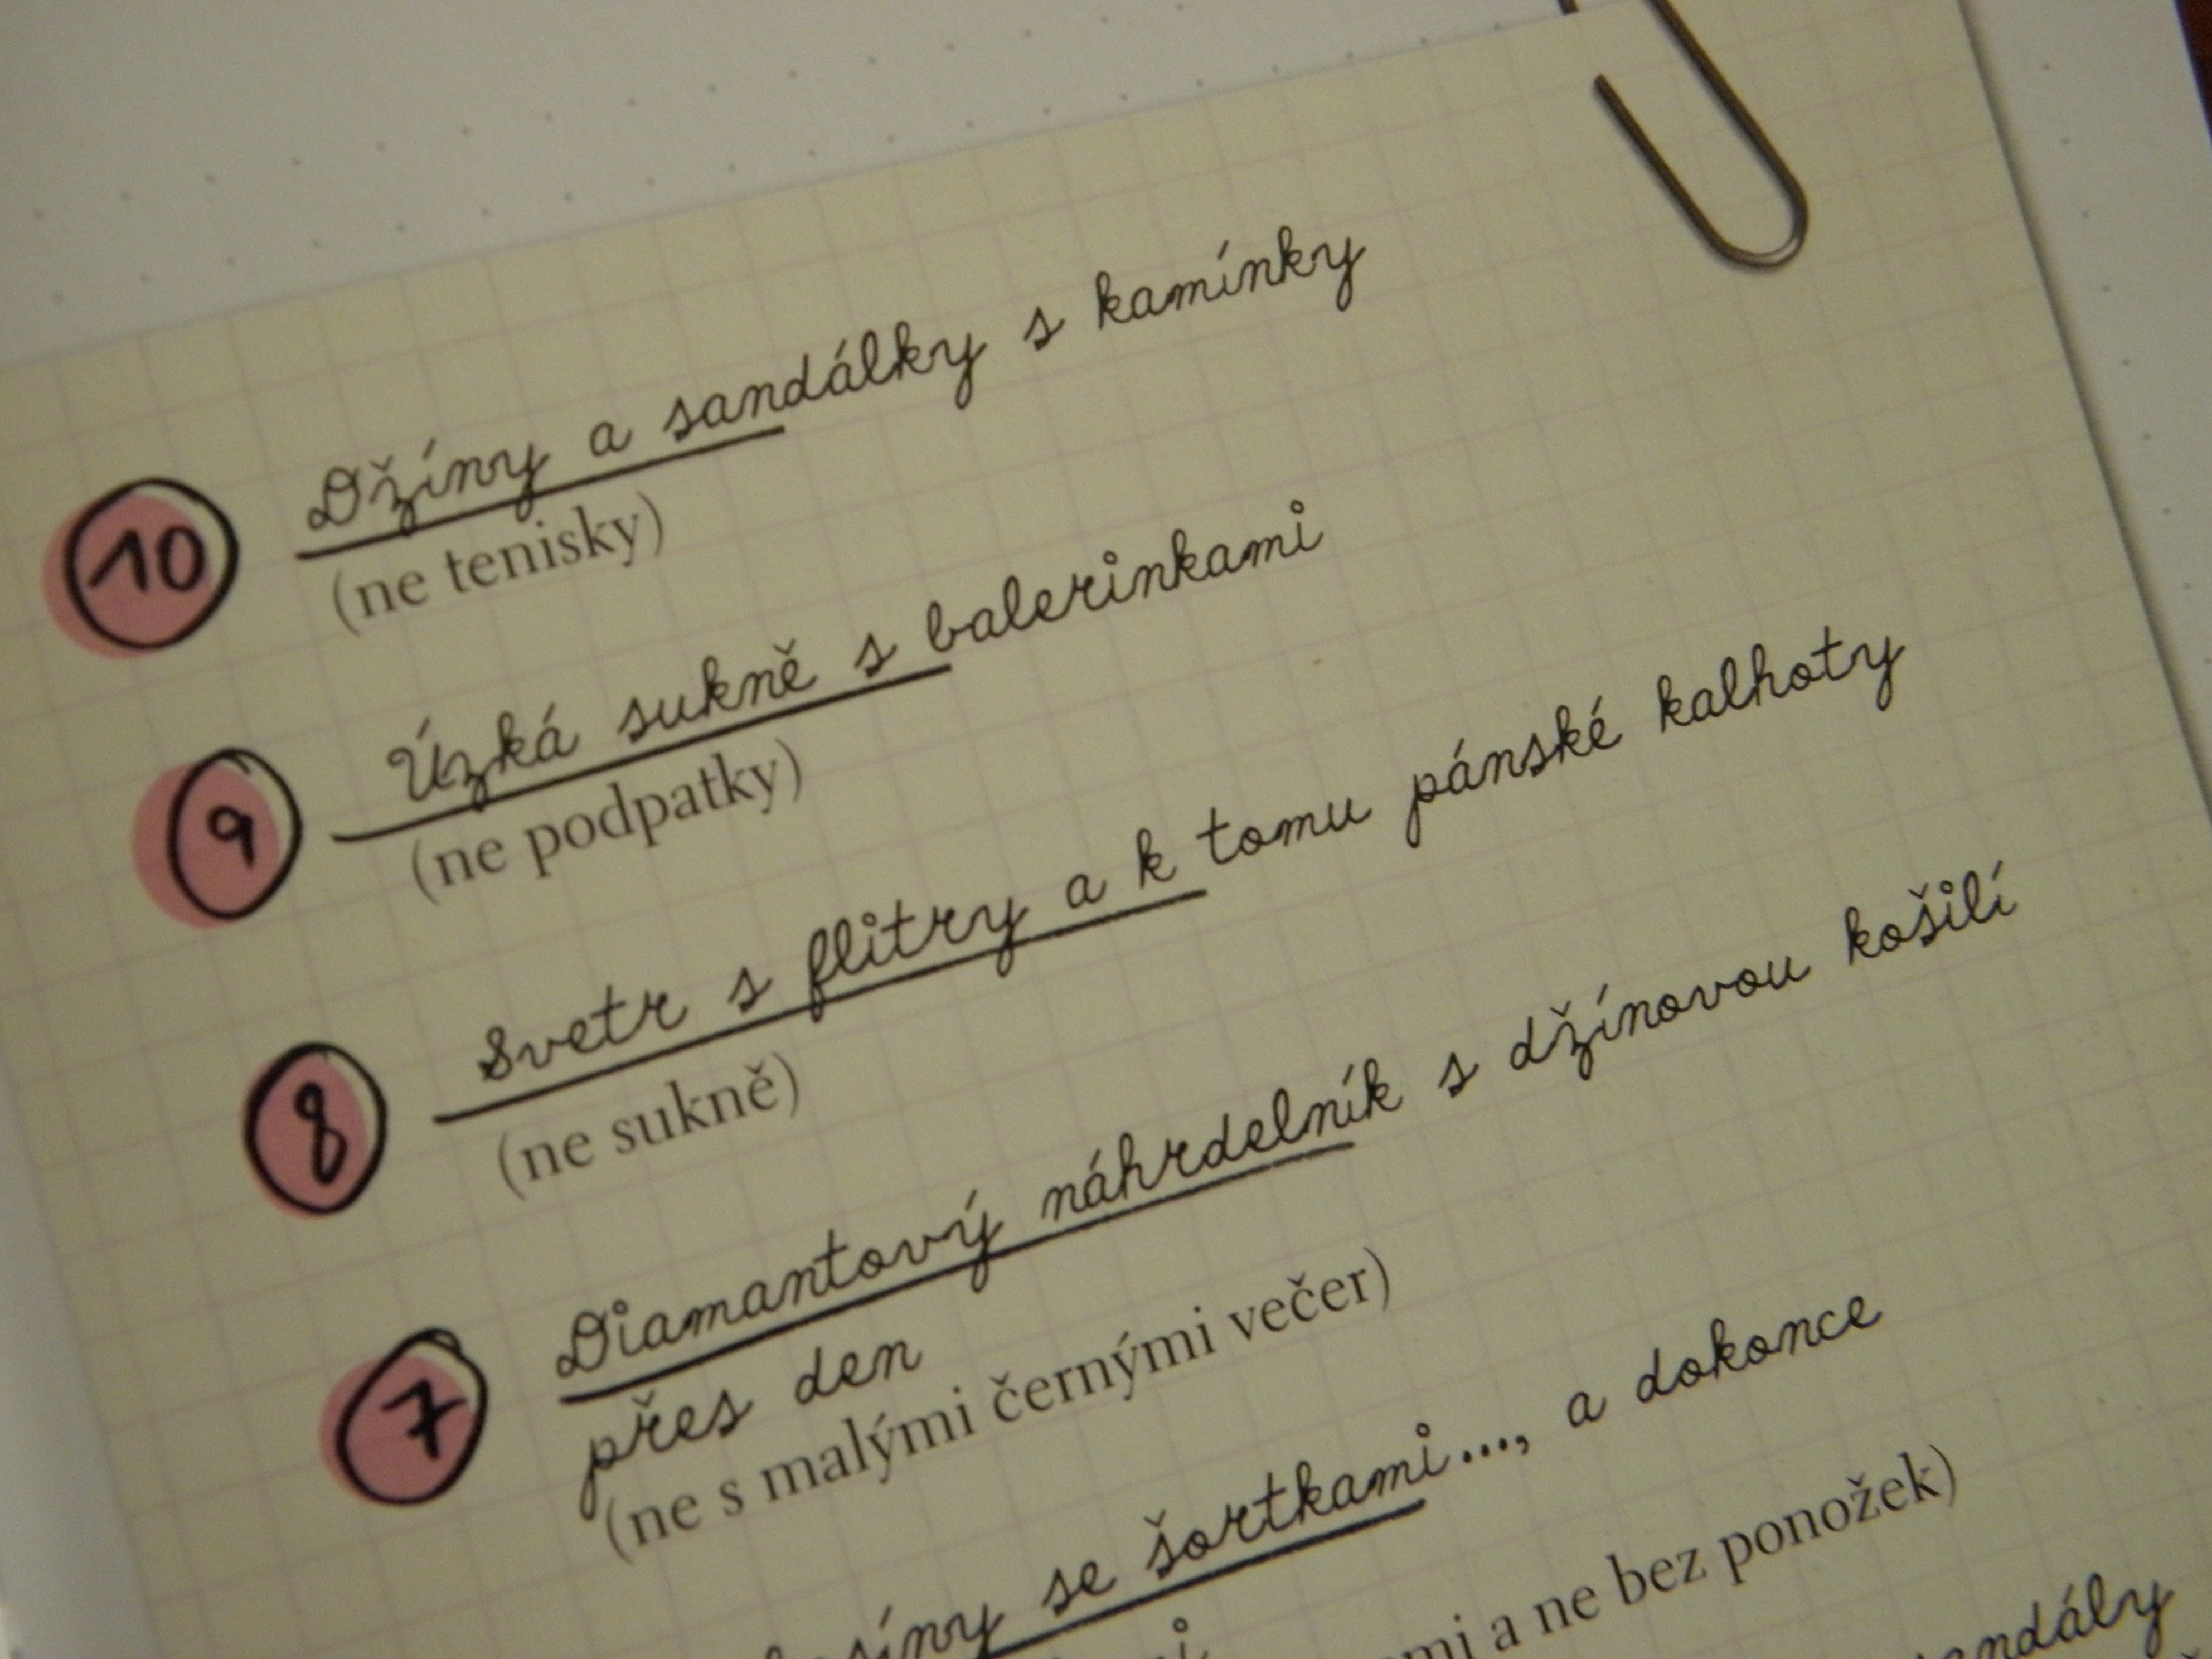 10 Džíny a sandálky s kamínky
(ne tenisky)
9 Úzká sukně s balerinkami
(ne podpatky)
8 Svetr s flitry a k tomu pánské kalhoty
(ne sukně)
7 Diamantový náhrdelník s džínovou košilí
přes den
(ne s malými černými večer)
se šortkami..., a dokonce
a ne bez ponožek)